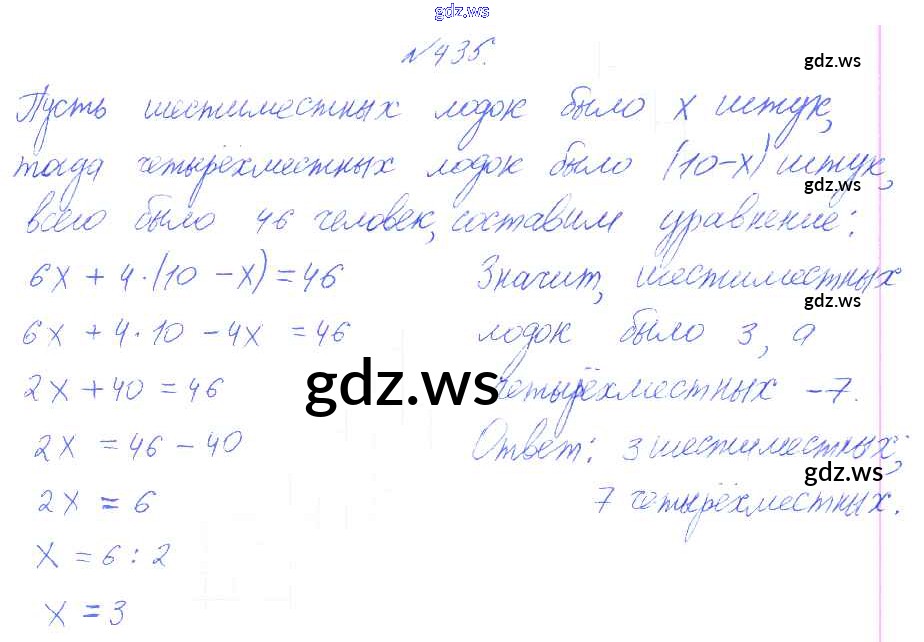 gdz.ws
№435.
gdz.ws
Пусть шестиместных лодок было х штук,
тогда четырёхместных лодок было (10-х) штук,
gdz.ws
всего было 46 человек, составим уравнение:
6х + 4·(10 - х) = 46
6х + 4·10 - 4х = 46
2х + 40 = 46
2х = 46 - 40
2х = 6
х = 6 : 2
х = 3
gdz.ws
Значит, шестиместных
gdz.ws
лодок было 3, а
четырёхместных - 7.
Ответ: 3 шестиместных;
gdz.ws
7 четырёхместных.